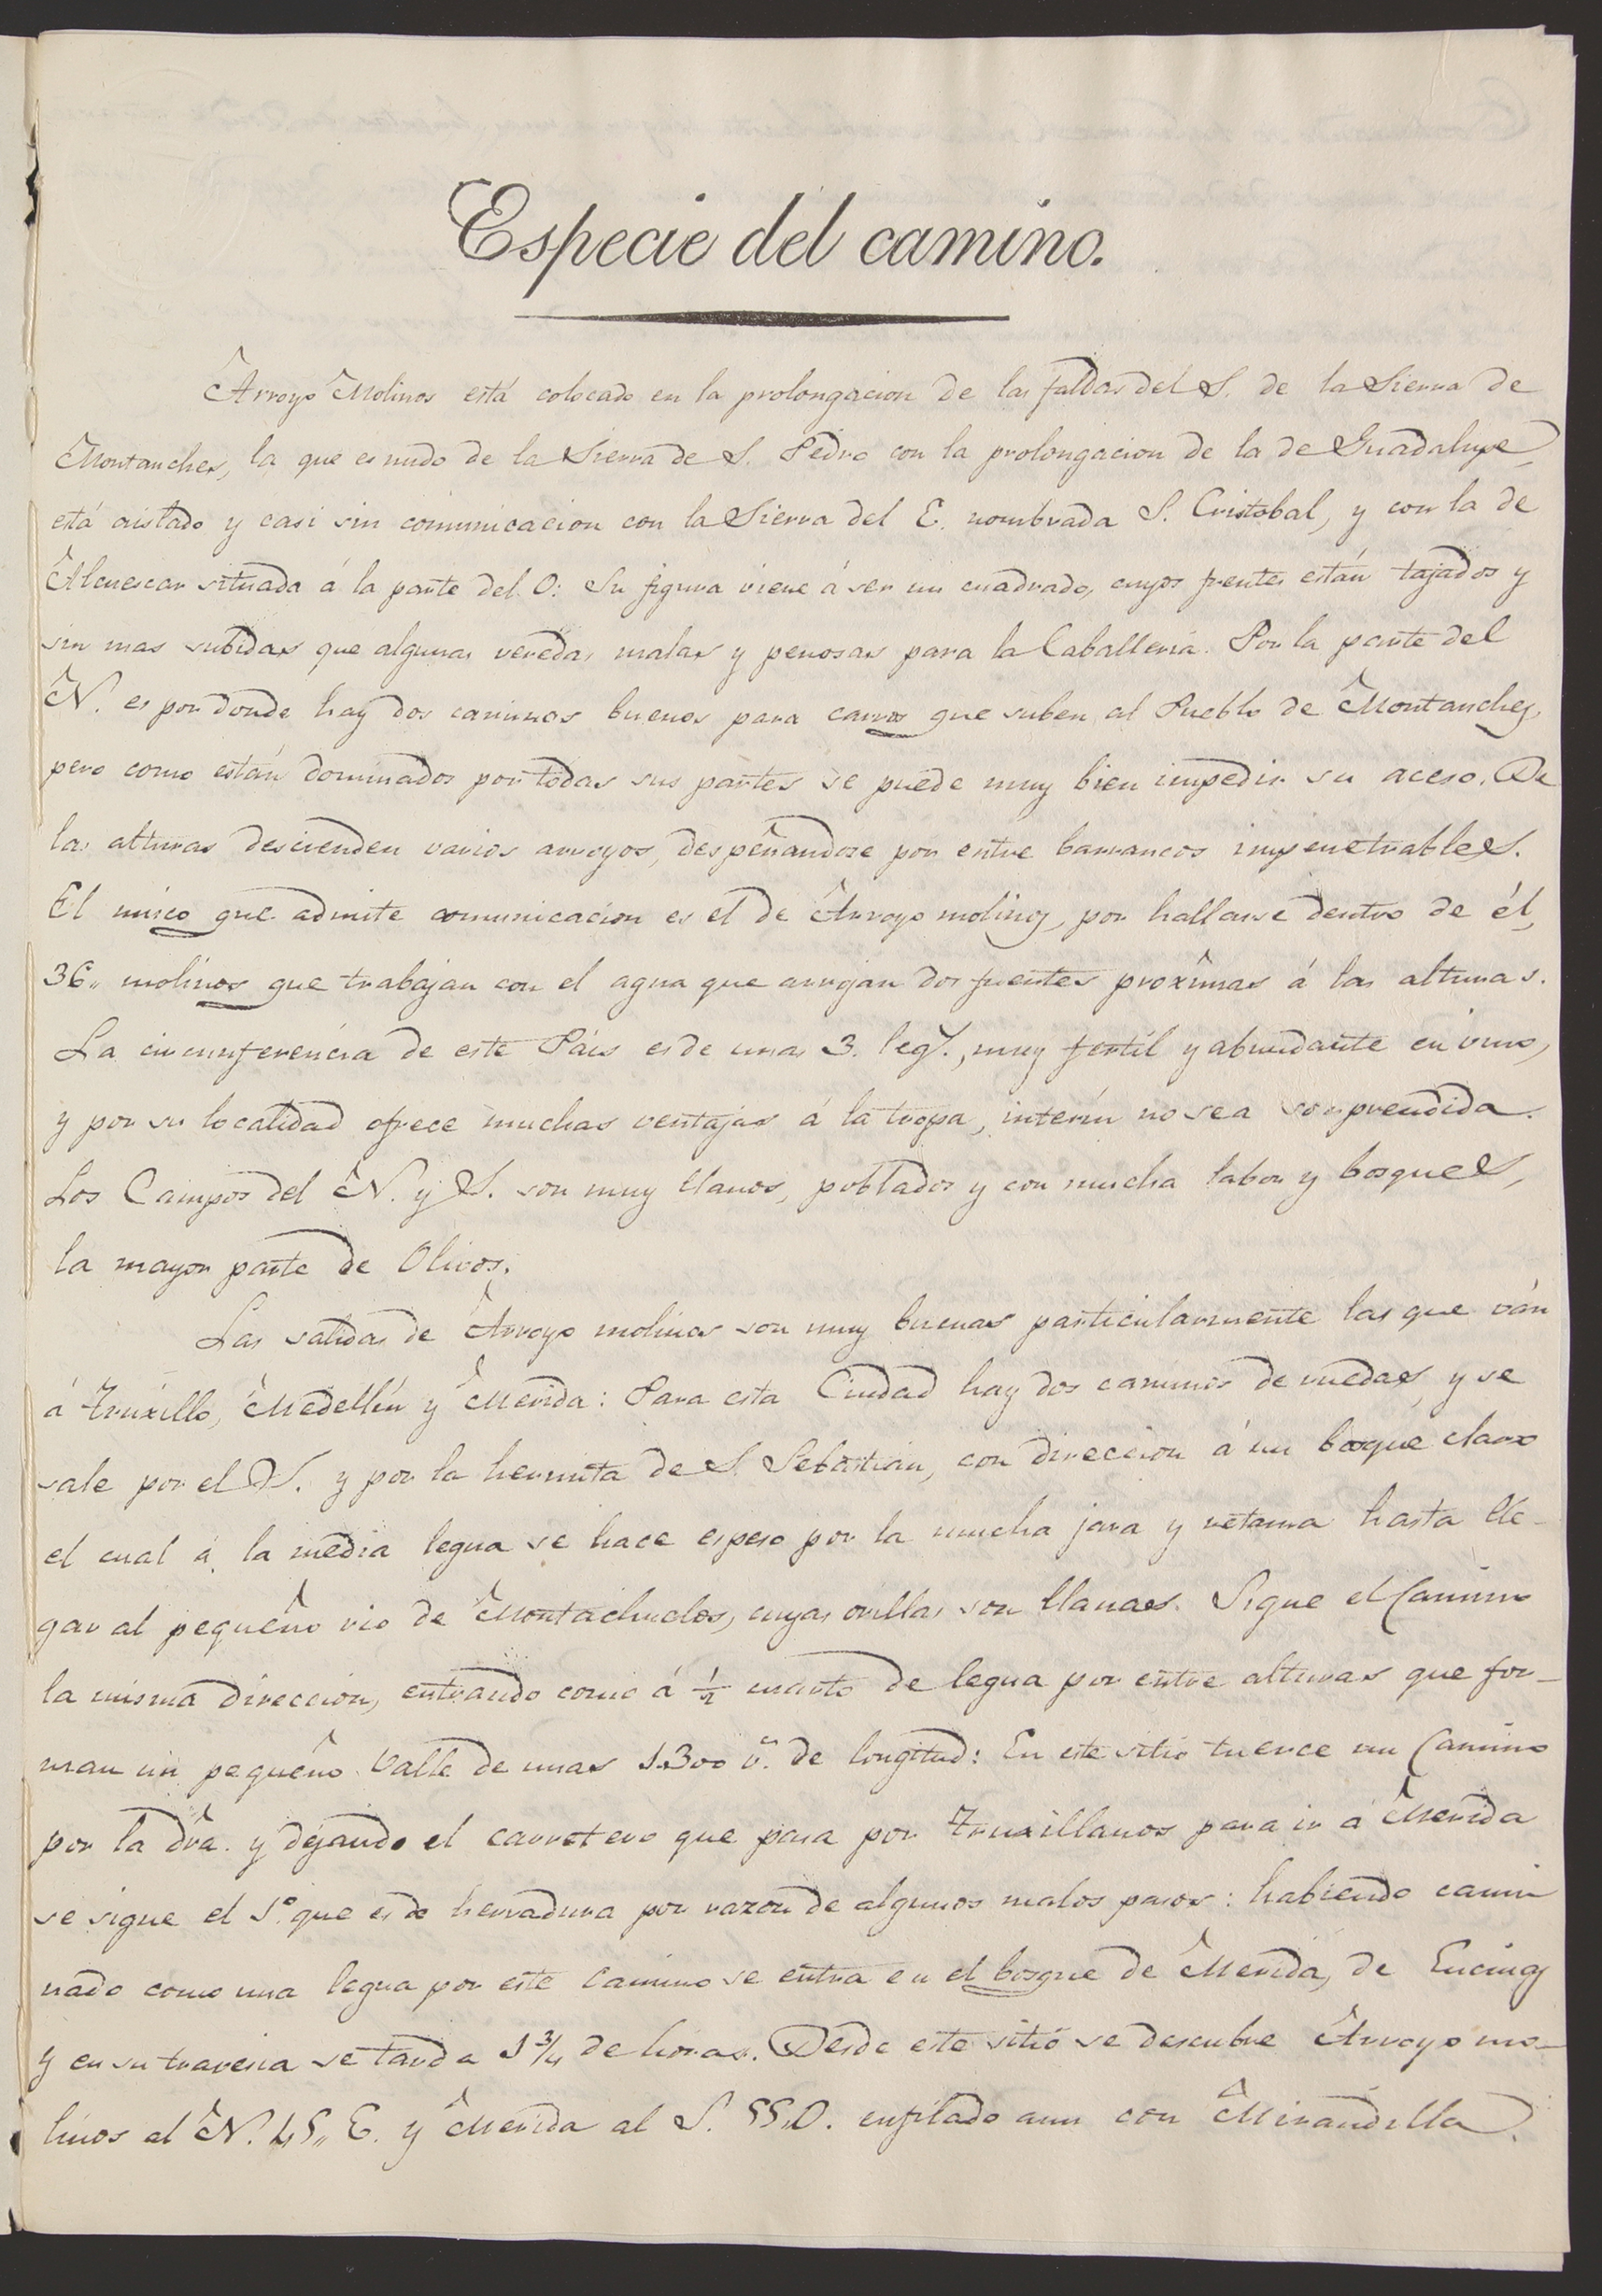 Especie del camino.
Arroyo Molinos está colocado en la prolongacion de las faldas del S. de la Sierra de
Montanches, la que es nudo de la Sierra de S. Pedro con la prolongacion de la de Guadalupe,
está aislado y casi sin comunicacion con la Sierra del E. nombrada S. Cristobal, y con la de
Alcuescar situada á la parte del O: Su figura viene á ser un cuadrado, cuyos frentes están tajados y
sin mas subidas que algunas veredas malas y penosas para la Caballeria. Por la parte del
N. es por donde hay dos caminos buenos para carros que suben al Pueblo de Montanchez,
pero como están dominados por todas sus partes se puede muy bien impedir su aceso. De
las alturas descienden varios arroyos, despeñandose por entre barrancos impenetrables.
El unico que admite comunicacion es el de Arroyo molinos, por hallarse dentro de él,
36,, molinos que trabajan con el agua que arrojan dos fuentes proximas á las alturas.
La circunferencia de este Pais es de unas 3. leg.s, muy fertil y abundante en vino,
y por su localidad ofrece muchas ventajas á la tropa, interin no sea sorprendida.
Los Campos del N. y S. son muy llanos, poblados y con mucha labor y bosques,
la mayor parte de Olivos.
Las salidas de Arroyo molinos son muy buenas particularmente las que ván
á Truxillo, Medellin y Merida: Para esta Ciudad hay dos caminos de ruedas, y se
sale por el S. y por la hermita de S. Sebastian, con direccion á un bosque claro
el cual á la media legua se hace espeso por la mucha jara y retama hasta lle-
gar al pequeño rio de Montachuelos, cuyas orillas son llanas. Sigue el Camino
la misma direccion, entrando como á ½ cuarto de legua por entre alturas que for-
man un pequeño Valle de unas 1300 v.s de longitud: En este sitio tuerce un Camino
por la dra. y dejando el carretero que pasa por Truxillanos para ir á Merida
se sigue el 1.º que es de herradura por razon de algunos malos pasos: habiendo cami
nado como una legua por este Camino se entra en el bosque de Merida, de Encinas
y en su travesia se tarda 1 ¾ de horas. Desde este sitio se descubre Arroyo mo-
linos al N. 45,, E. y Merida al S. 55,, O. enfilado aun con Mirandilla.